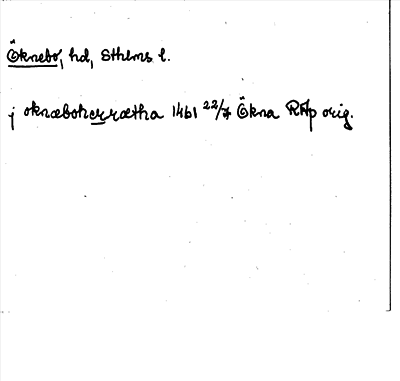 Öknebo, hd, Sthlms l.
j oknæboherrætha 1461 22/7 Ökna RAp orig.